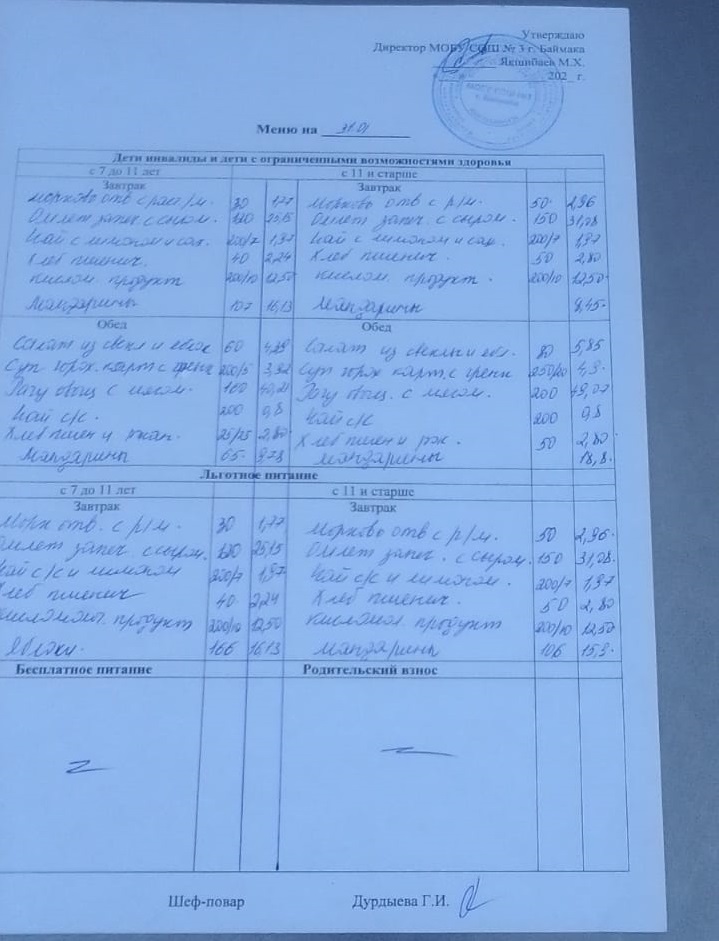 Утверждаю
Директор МОБУ СОШ № 3 г. Баймака
Якшибаев М.Х.
202_ г.
Меню на 31.01
Дети инвалиды и дети с ограниченными возможностями здоровья
с 7 до 11 лет с 11 и старше
Завтрак Завтрак
Морково отв с раст/м. 30 1,77 Морково отв с р/м. 50 2,96
Омлет запеч с сыром. 120 25,15 Омлет запеч. с сыром. 150 31,28
Чай с лимоном и сах. 200/7 1,97 Чай с лимоном и сах. 200/7 1,97
Хлеб пшенич. 40 2,24 Хлеб пшенич. 50 2,80
кислом. продукт 200/10 12,50 кислом. продукт. 200/10 12,50
Мандарины 107 16,13 Мандарины 8,45
Обед Обед
Салат из свекл и яблок 60 Салат из свеклы и ябл. 80 5,85
Суп горох карт с гренк 200/5 Суп горох карт. с гренк 250/20 4,9
Рагу овощ с мясом. 160 40,21 Рагу овощ. с мясом. 200 49,07
Чай с/к. 200 0,8 Чай с/к 200 0,8
Хлеб пшен и ржан. 25/25 2,80 Хлеб пшен и рж. 50 2,80
Мандарины 65 9,78 мандарины 18,8
Льготное питание
с 7 до 11 лет с 11 и старше
Завтрак Завтрак
Морк отв. с р/м. 30 1,77 Морково отв с р/м. 50 2,96
Омлет запеч. с сыром. 120 25,15 Омлет запеч. с сыром. 150 31,28
Чай с/к и лимоном 200/7 1,97 Чай с/к и лимоном. 200/7 1,97
Хлеб пшенич 40 2,24 Хлеб пшенич. 50 2,80
продукт 200/10 12,50 продукт 200/10 12,50
Яблоки 166 16,13 Мандарины 106 15,9
Бесплатное питание Родительский взнос
Z
Шеф-повар Дурдыева Г.И.